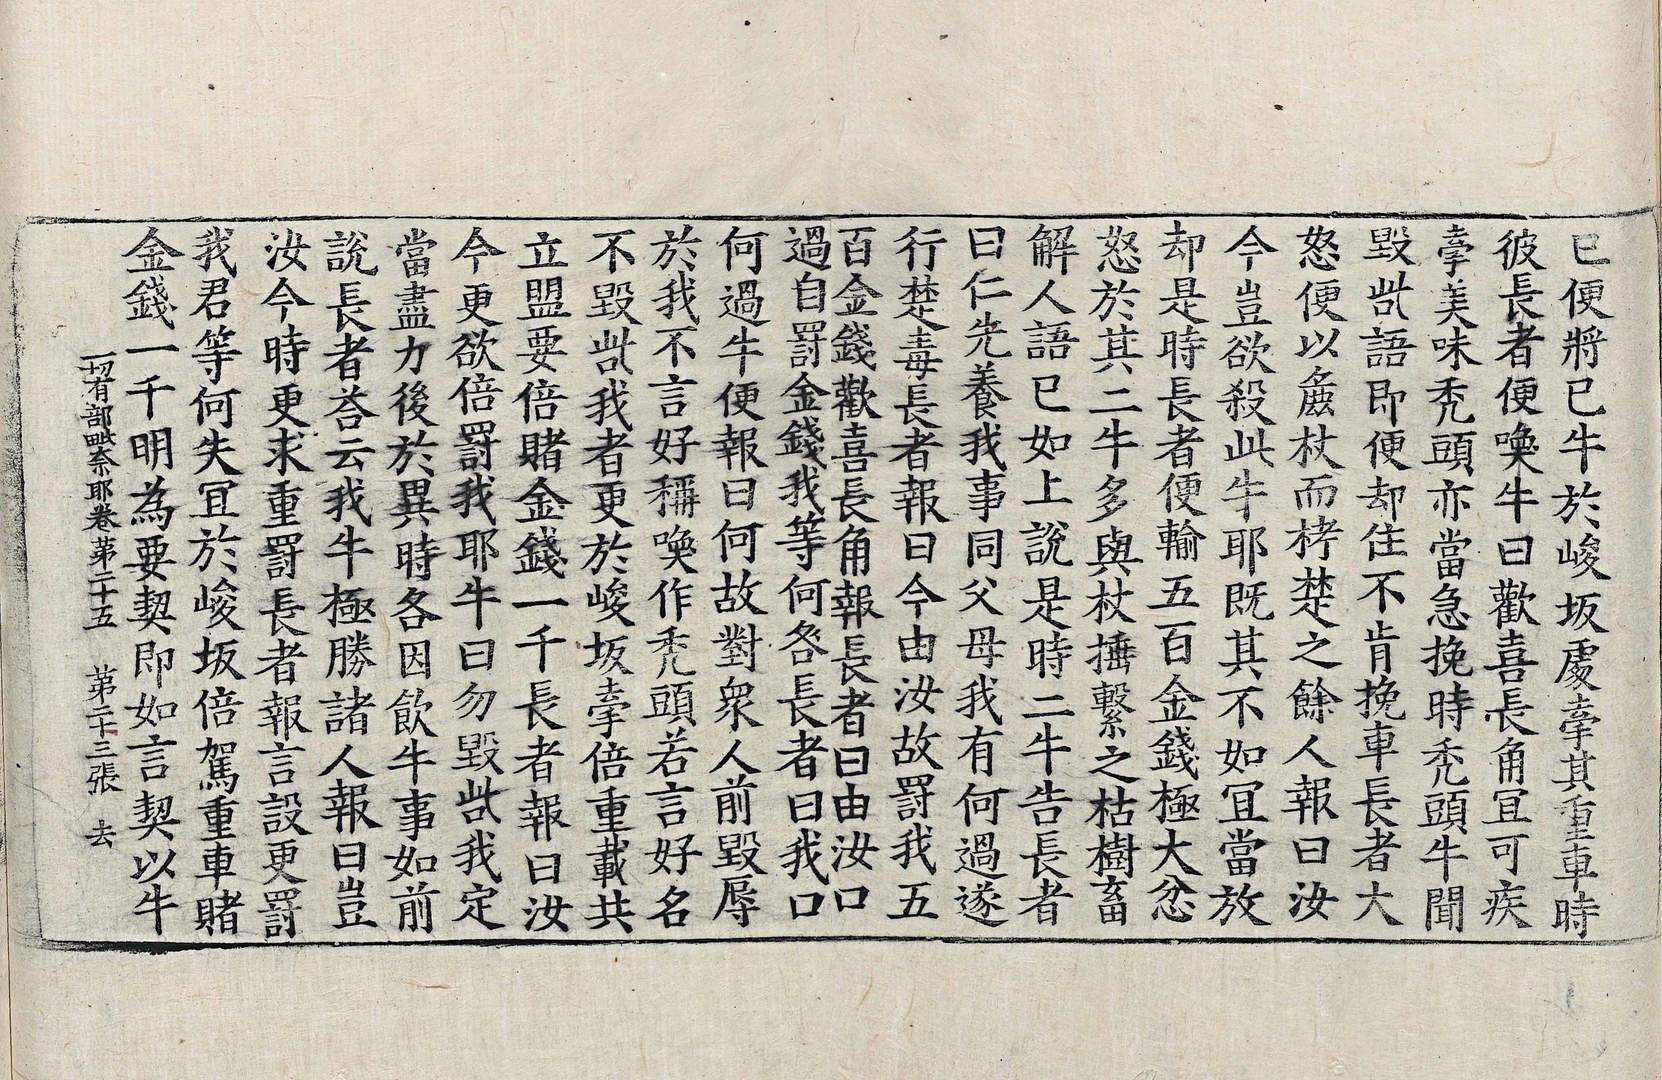 已便將已牛於峻坂處牽其重車時
彼長者便喚牛曰歡喜長角冝可疾
牽美味秃頭亦當急挽時秃頭牛聞
毀呰語即便却住不肯挽車長者大
怒便以麁杖而栲楚之餘人報曰汝
今豈欲殺此牛耶既其不如冝當放
却是時長者便輸五百金錢極大忿
怒於其二牛多與杖捶繫之枯樹畜
解人語已如上說是時二牛告長者
曰仁先養我事同父母我有何過遂
行楚毒長者報曰今由汝故罰我五
百金錢歡喜長角報長者曰由汝口
過自罰金錢我等何咎長者曰我口
何過牛便報曰何故對衆人前毀辱
於我不言好稱喚作秃頭若言好名
不毀呰我者更於峻坂牽倍重載共
立盟要倍賭金錢一千長者報曰汝
今更欲倍罰我耶牛曰勿毀呰我定
當盡力後於異時各因飲牛事如前
說長者荅云我牛極勝諸人報曰豈
汝今時更求重罰長者報言設更罸
我君等何失冝於峻坂倍駕重車賭
金錢一千明為要契即如言契以牛
一切有部毗奈耶卷苐二十五 苐二十三張 去